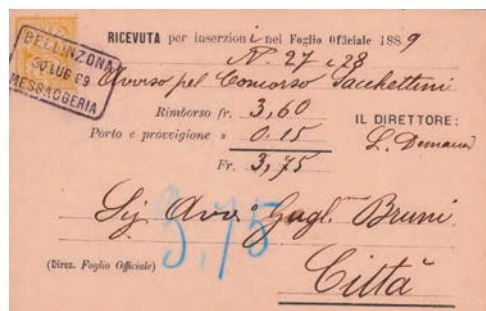 BELLINZONA
30 LUG 89
MESSAGGERIA
RICEVUTA per inserzioni nel Foglio Officiale 1889
N. 27 e 28
Avviso pel Concorso Sacchettini
Rimborso fr. 3,60
Porto e provvigione » 0.15
IL DIRETTORE:
Fr. 3,75
L.
Sig. Avv. Gugl. Bruni
3,75
(Direz. Foglio Officiale)
Città